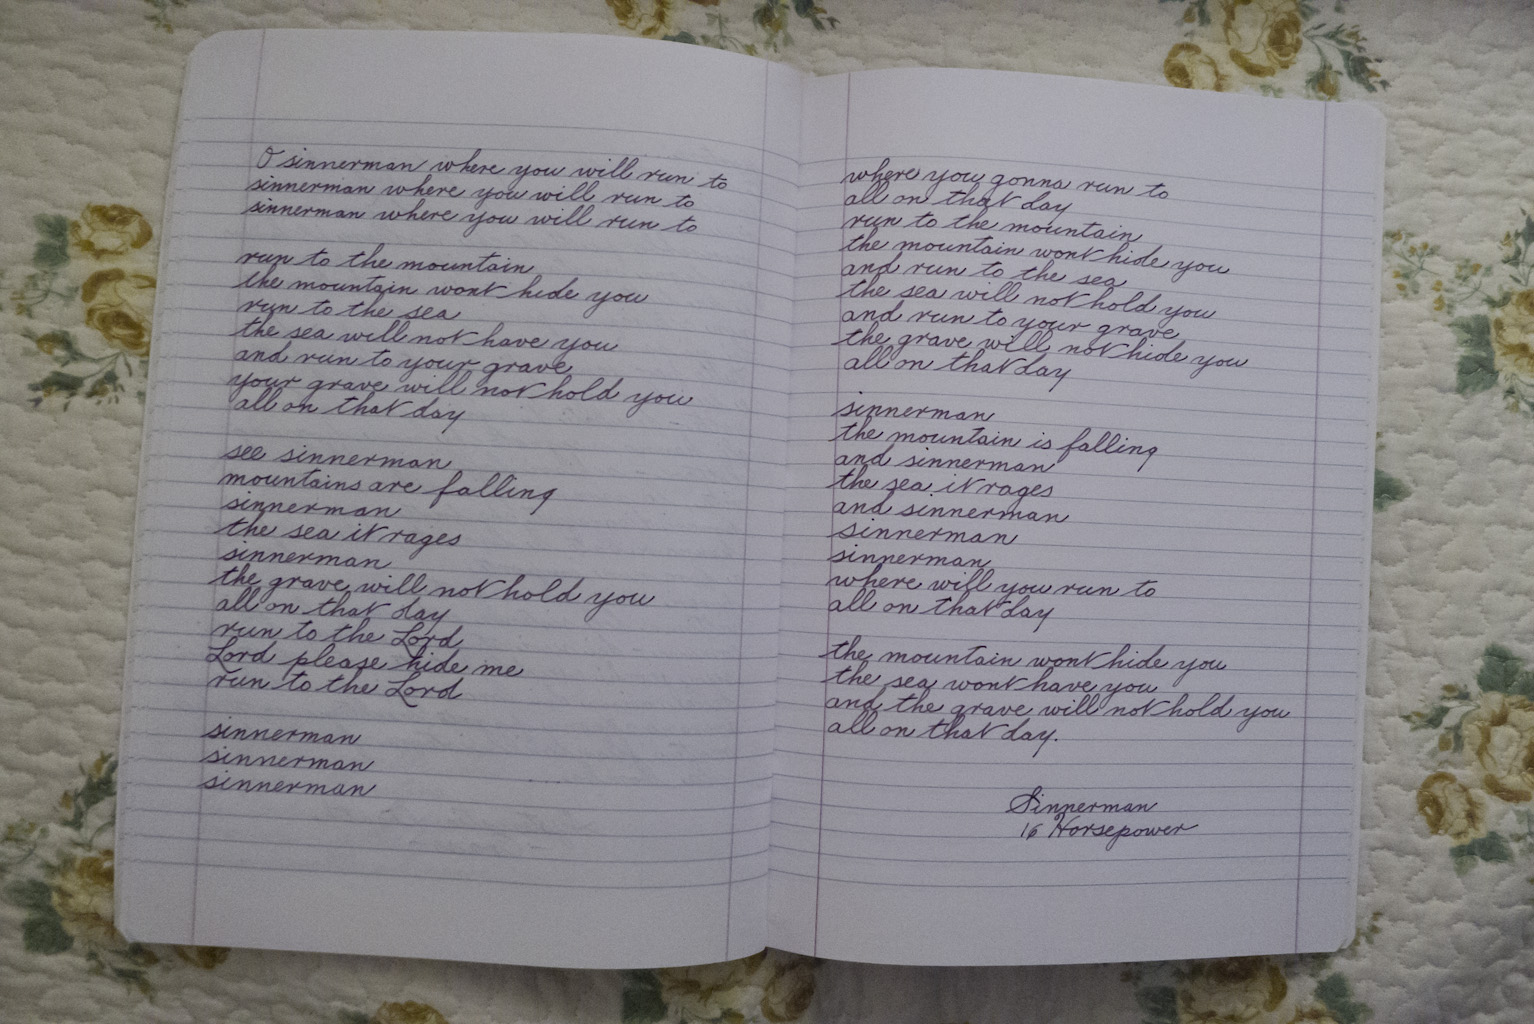 O sinnerman where you will run to
sinnerman where you will run to
sinnerman where you will run to
run to the mountain
the mountain wont hide you
run to the sea
the sea will not have you
and run to your grave
your grave will not hold you
all on that day
see sinnerman
mountains are falling
sinnerman
the sea it rages
sinnerman
the grave will not hold you
all on that day
run to the Lord
Lord please hide me
run to the Lord
sinnerman
sinnerman
sinnerman
where you gonna run to
all on that day
run to the mountain
the mountain wont hide you
and run to the sea
the sea will not hold you
and run to your grave
the grave will not hide you
all on that day
sinnerman
the mountain is falling
and sinnerman
the sea it rages
and sinnerman
sinnerman
sinnerman
where will you run to
all on that day
the mountain wont hide you
the sea wont have you
and the grave will not hold you
all on that day.
Sinnerman
16 Horsepower